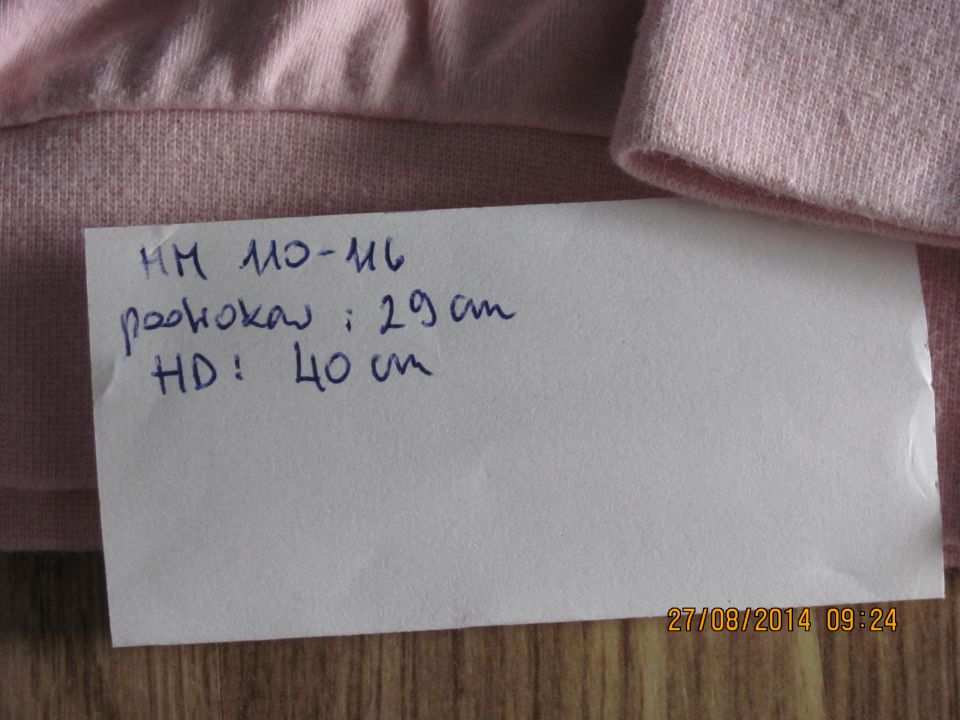 HM 110-116
podrokav : 29 cm
HD: 40 cm
27/08/2014 09:24